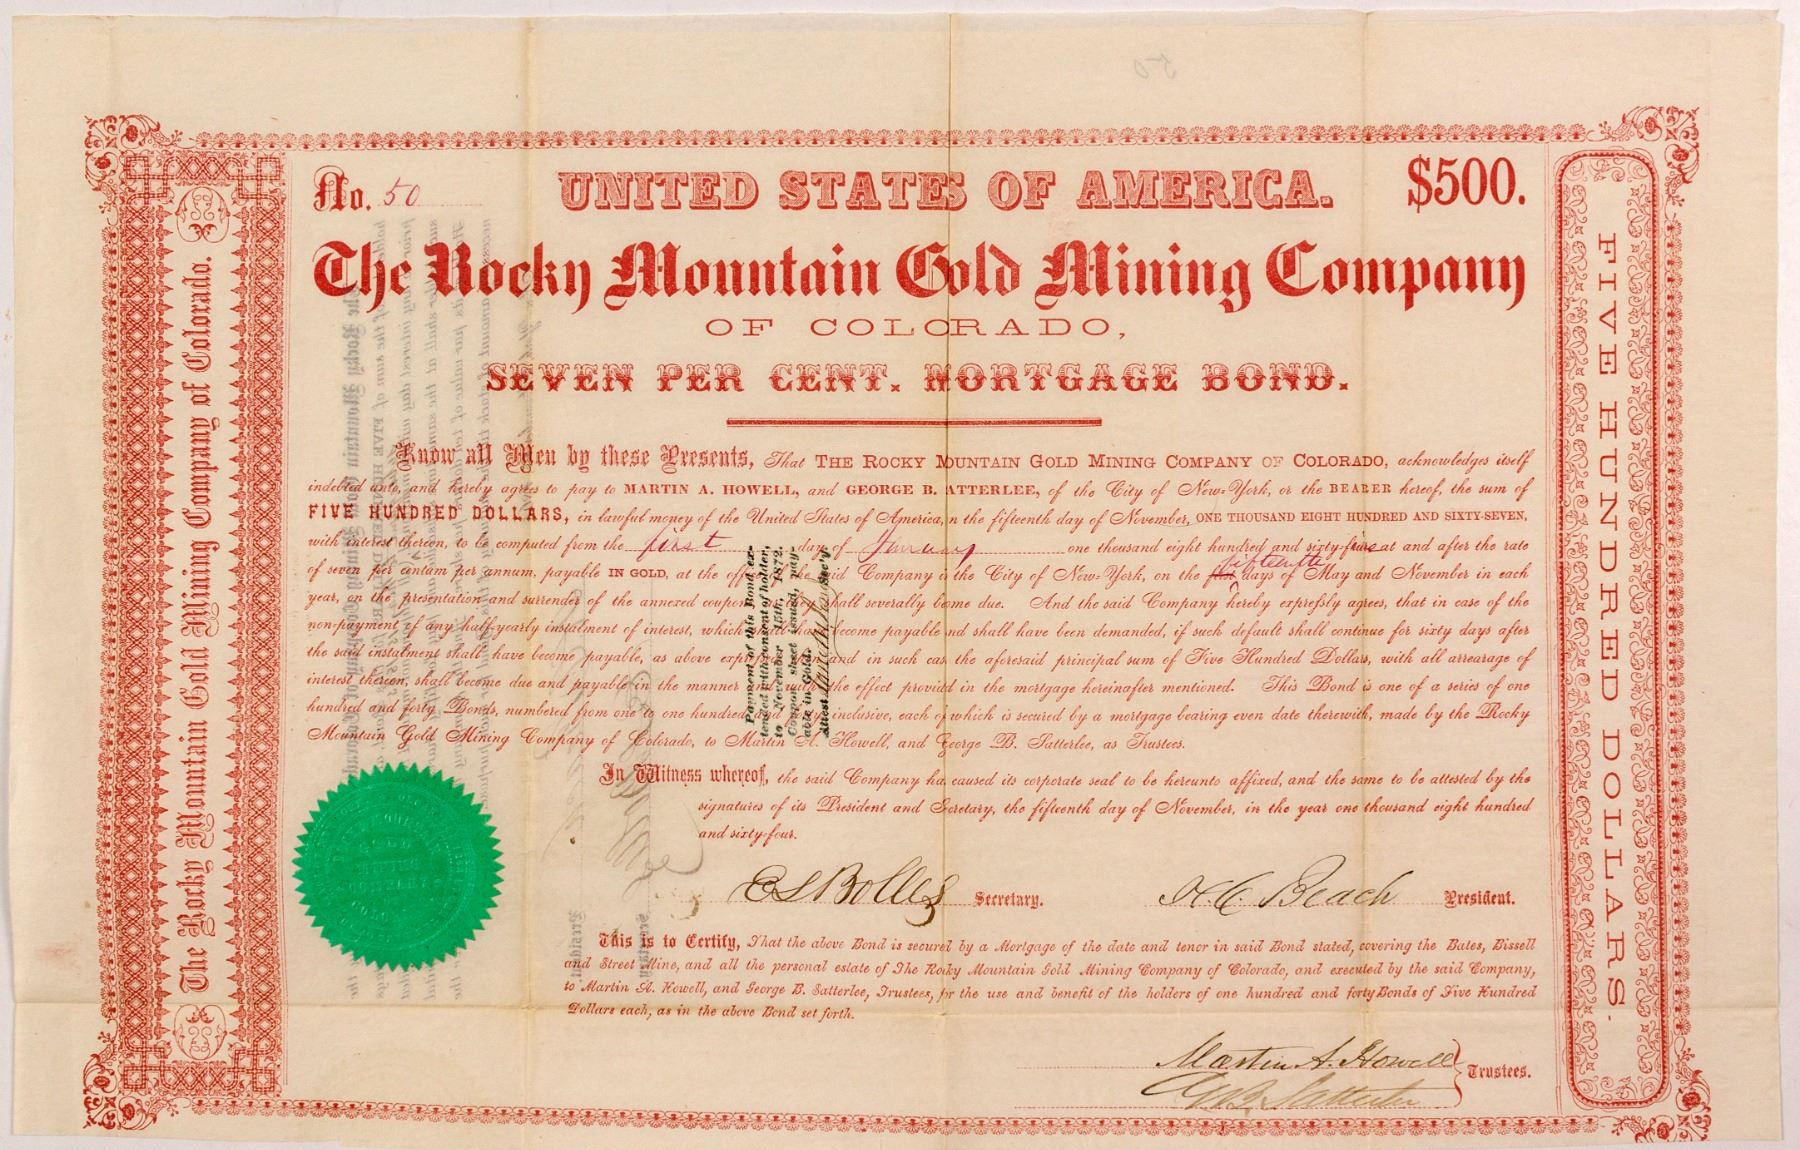 No. 50
UNITED STATES OF AMERICA.
$500.
The Rocky Mountain Gold Mining Company
OF COLORADO,
SEVEN PER CENT. MORTGAGE BOND.
Know all Men by these Presents, That THE ROCKY MOUNTAIN GOLD MINING COMPANY OF COLORADO, acknowledges itself
indebted unto, and hereby agrees to pay to MARTIN A. HOWELL, and GEORGE B. ATTERLEE, of the City of New-York, or the BEARER hereof, the sum of
FIVE HUNDRED DOLLARS, in lawful money of the United States of America, n the fifteenth day of November, ONE THOUSAND EIGHT HUNDRED AND SIXTY-SEVEN,
with interest thereon, to be computed from the first day of January one thousand eight hundred and sixty-five at and after the rate
of seven per centum per annum, payable IN GOLD, at the office of the said Company in the City of New-York, on the fifteenth days of May and November in each
year, on the presentation and surrender of the annexed coupon they shall severally become due. And the said Company hereby expressly agrees, that in case of the
non-payment of any half-yearly instalment of interest, which shall have become payable nd shall have been demanded, if such default shall continue for sixty days after
the said instalment shall have become payable, as above expressed, and in such cas the aforesaid principal sum of Five Hundred Dollars, with all arrearage of
interest thereon, shall become due and payable in the manner and with the effect provided in the mortgage hereinafter mentioned. This Bond is one of a series of one
hundred and forty Bonds, numbered from one to one hundred and forty inclusive, each of which is secured by a mortgage bearing even date therewith, made by the Rocky
Mountain Gold Mining Company of Colorado, to Martin A. Howell, and George B. Satterlee, as Trustees.
Payment of this Bond ex-
tended with consent of holder,
to November 15th, 1872.
Coupon sheet issued, pay-
able in Gold.
Attest Sec'y.
In Witness whereof, the said Company ha caused its corporate seal to be hereunto affixed, and the same to be attested by the
signatures of its President and Secretary, the fifteenth day of November, in the year one thousand eight hundred
and sixty-four.
E S Bolles Secretary. H. C. Beach President.
This is to Certify, That the above Bond is secured by a Mortgage of the date and tenor in said Bond stated, covering the Bates, Bissell
and Street Mine, and all the personal estate of The Rocky Mountain Gold Mining Company of Colorado, and executed by the said Company,
to Martin A. Howell, and George B. Satterlee, Trustees, for the use and benefit of the holders of one hundred and forty Bonds of Five Hundred
Dollars each, as in the above Bond set forth.
Martin A. Howell
G B. Satterlee
Trustees.
The Rocky Mountain Gold Mining Company of Colorado.
FIVE HUNDRED DOLLARS.